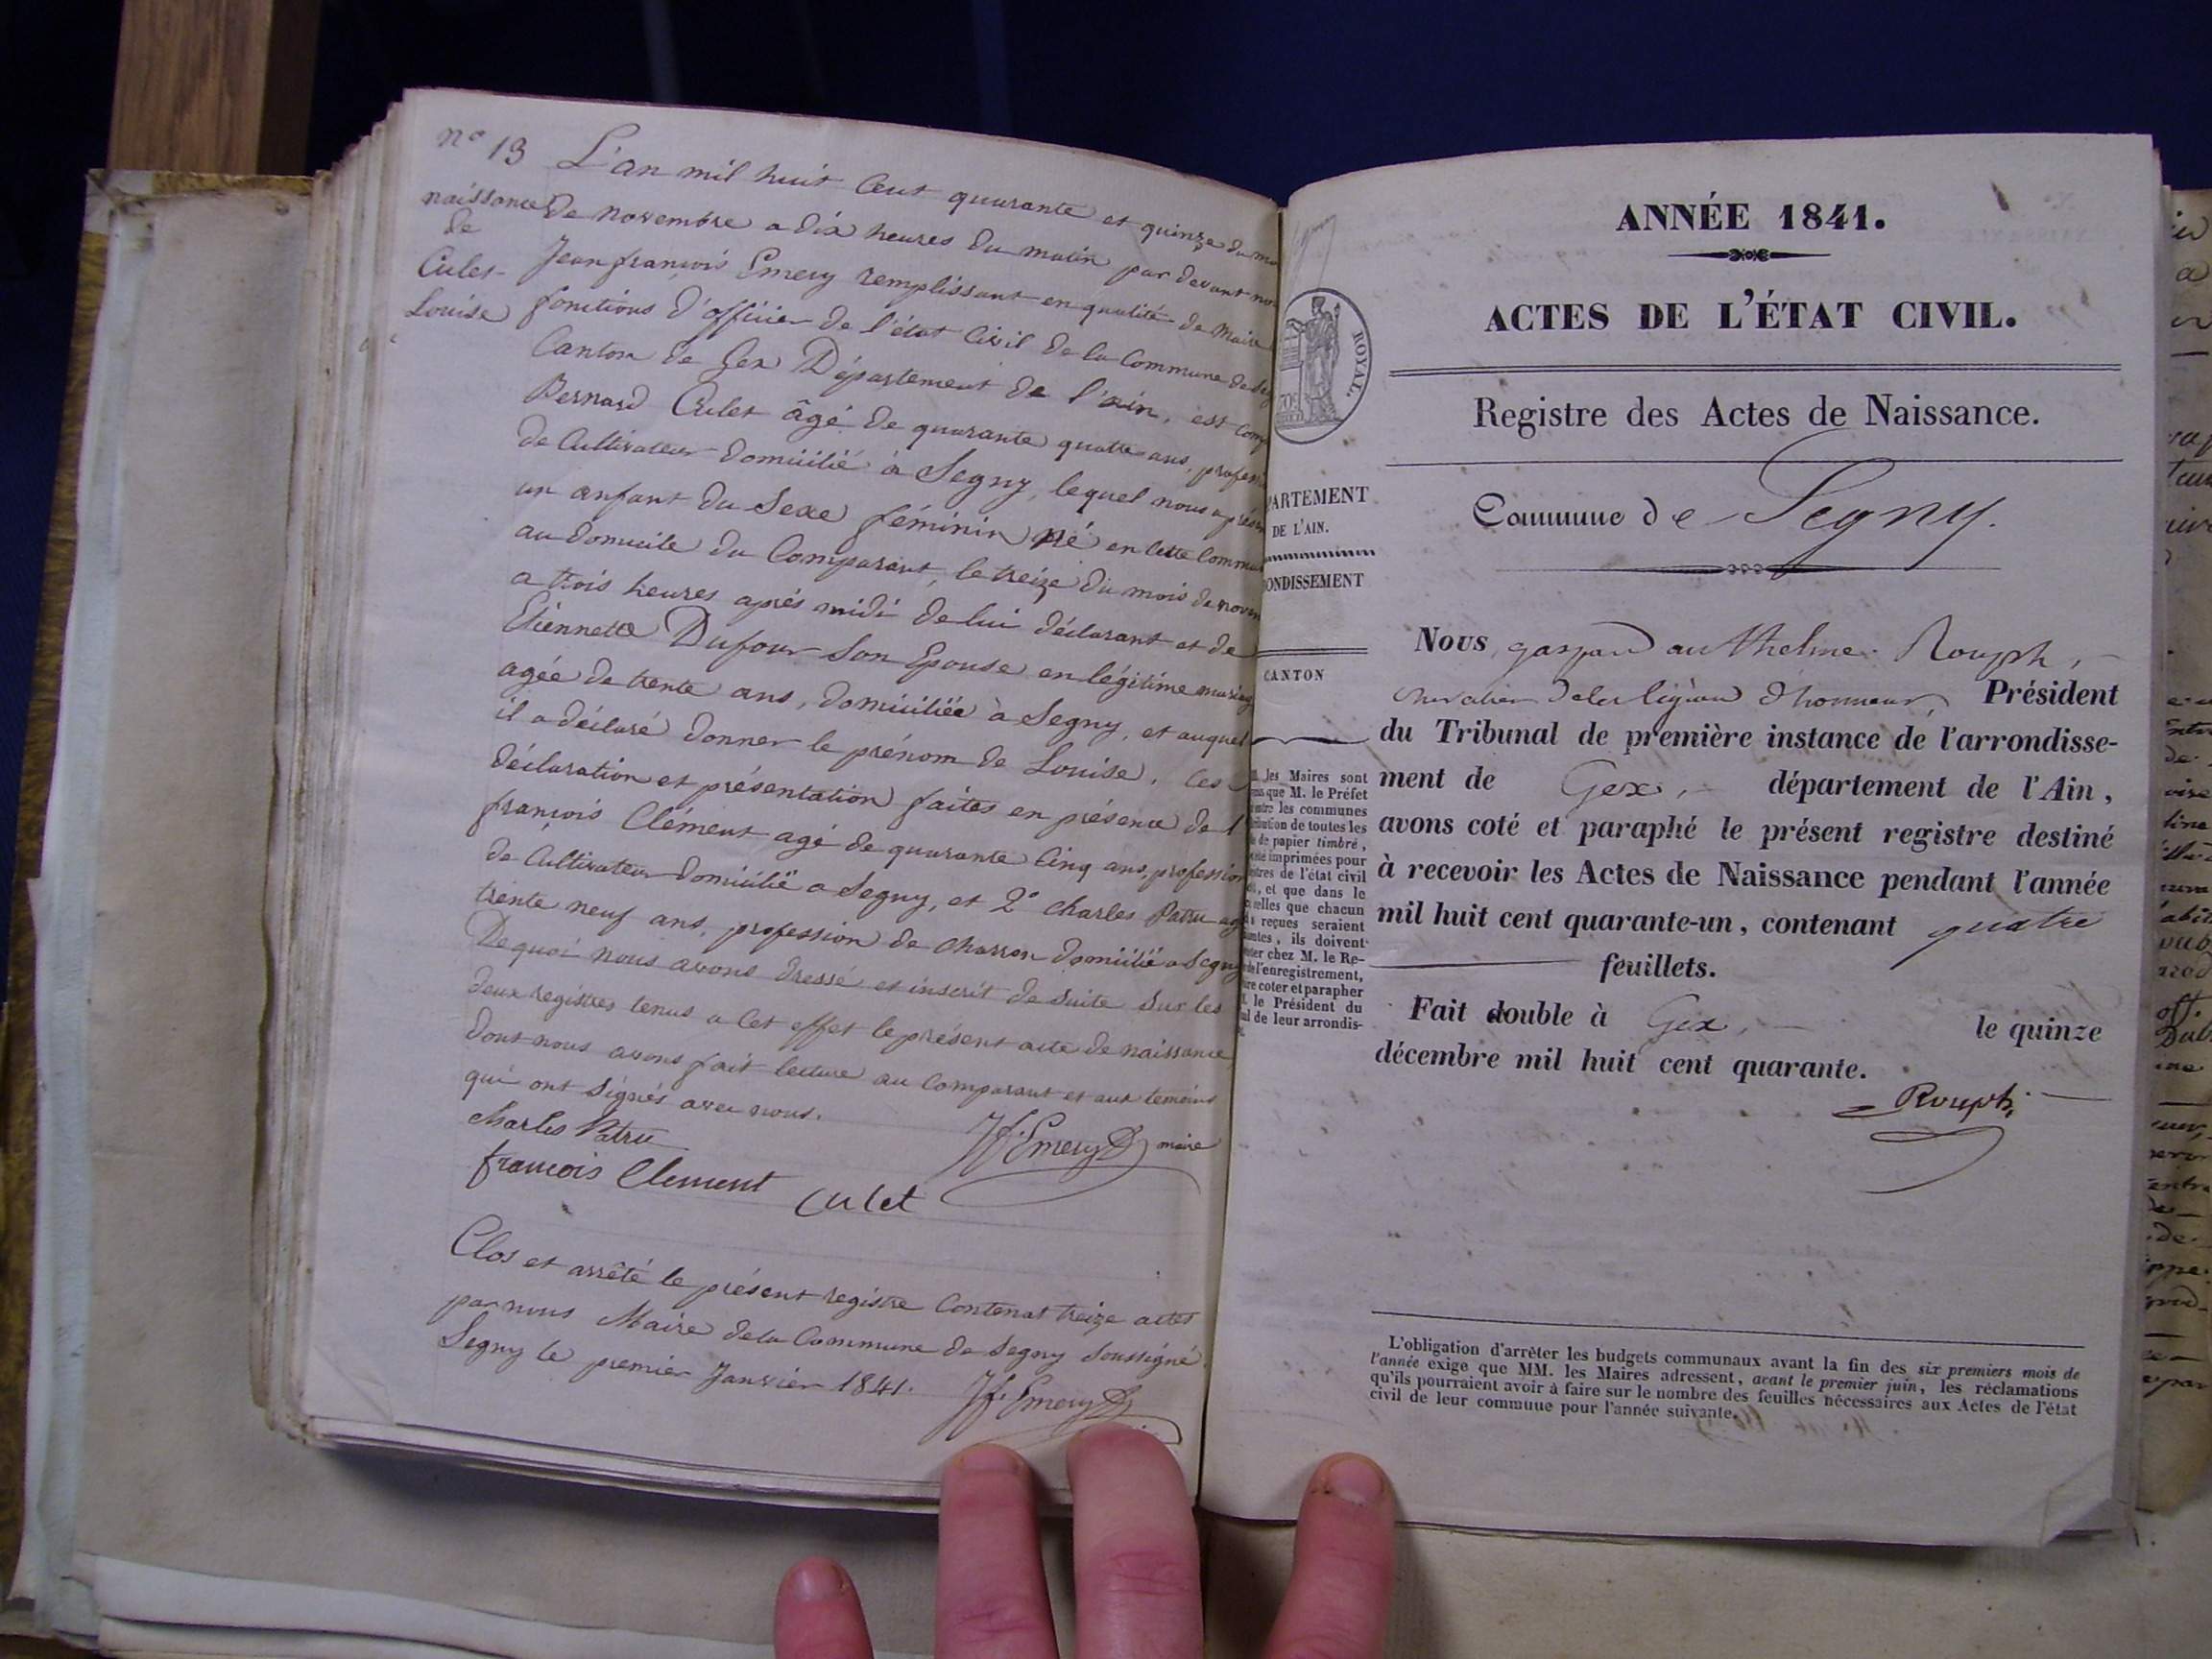 n° 13
naissance
de
Culet
Louise
L'an mil huit Cent quarante et quinze du
de novembre a dix heures du matin par devant
Jean françois Emery remplissant en qualité de Maire
fonctions d'officier de l'état Civil de la Commune de
Canton de Gex Département de l'ain, est
Bernard Culet âgé de quarante quatre ans,
de Cultivateur domicilié à Segny, lequel nous a
un enfant du Sexe féminin né en Cette
au domicile du Comparant, le treize du mois de
a trois heures après midi de lui déclarant et de
Etiennette Dufour Son Epouse en légitime
agée de trente ans, domiciliée à Segny, et auquel
il a déclaré donner le prénom de Louise. Ces
déclaration et présentation faites en présence de 1
françois Clément agé de quarante Cinq ans, profession
de Cultivateur domicilié a Segny, et 2° Charles Patru
trente neuf ans, profession de charron domicilié a Segny
De quoi nous avons dressé et inscrit de Suite Sur les
deux registres tenus a Cet effet le présent acte de naissance
dont nous avons fait lecture au Comparant et aux temoins
qui ont Signés avec nous.
Charles Patru
Jf. Emery maire
francois Clement
Culet
Clos et arrêté le présent registre Contenat treize actes
par nous Maire de la Commune de Segny Soussigné
Segny le premier Janvier 1841.
Jf. Emery
ROYAL.
PARTEMENT
DE L'AIN.
ONDISSEMENT
CANTON
les Maires sont
que M. le Préfet
les communes
de toutes les
de papier timbré,
imprimées pour
de l'état civil
, et que dans le
elles que chacun
reçues seraient
, ils doivent
chez M. le Re-
de l'enregistrement,
coter et parapher
le Président du
de leur arrondis-
ANNÉE 1841.
ACTES DE L'ÉTAT CIVIL.
Registre des Actes de Naissance.
Commune de Segny.
Nous, gaspard anthelme Rouph,
chevalier de la légion d'honneur, Président
du Tribunal de première instance de l'arrondisse-
ment de Gex, département de l'Ain,
avons coté et paraphé le présent registre destiné
à recevoir les Actes de Naissance pendant l'année
mil huit cent quarante-un, contenant quatre
feuillets.
Fait double à Gex, le quinze
décembre mil huit cent quarante.
Rouph
L'obligation d'arrêter les budgets communaux avant la fin des six premiers mois de
l'année exige que MM. les Maires adressent, avant le premier juin, les réclamations
qu'ils pourraient avoir à faire sur le nombre des feuilles nécessaires aux Actes de l'état
civil de leur commune pour l'année suivante.